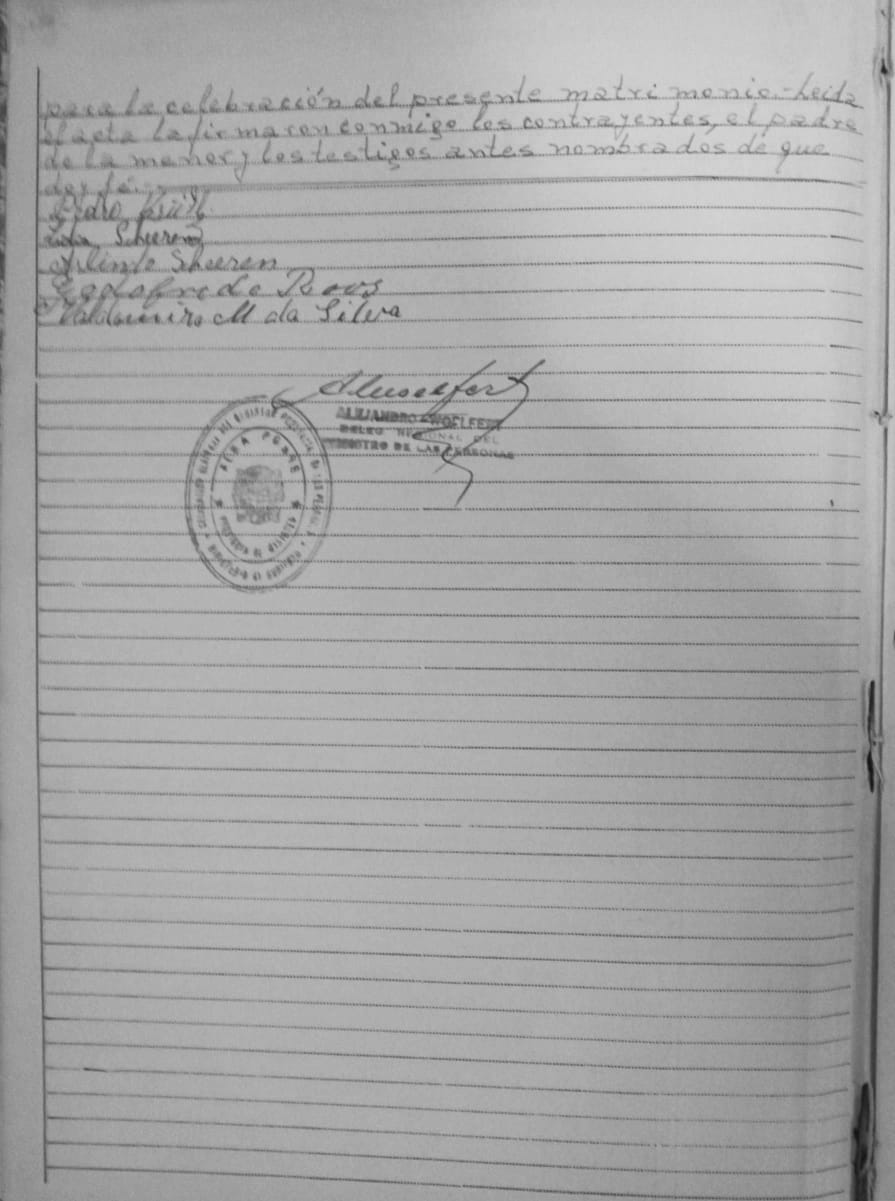 para la celebración del presente matrimonio.- Leída
el acta la firmaron conmigo los contrayentes, el padre
de la menor y los testigos antes nombrados de que
doy fé.-
Pedro
Scheeren
Arlindo Scheeren
Godofredo Roos
Valdomiro M da Silva
ALEJANDRO WOELFERT
DELEG REGIONAL DEL
REGISTRO DE LAS PERSONAS